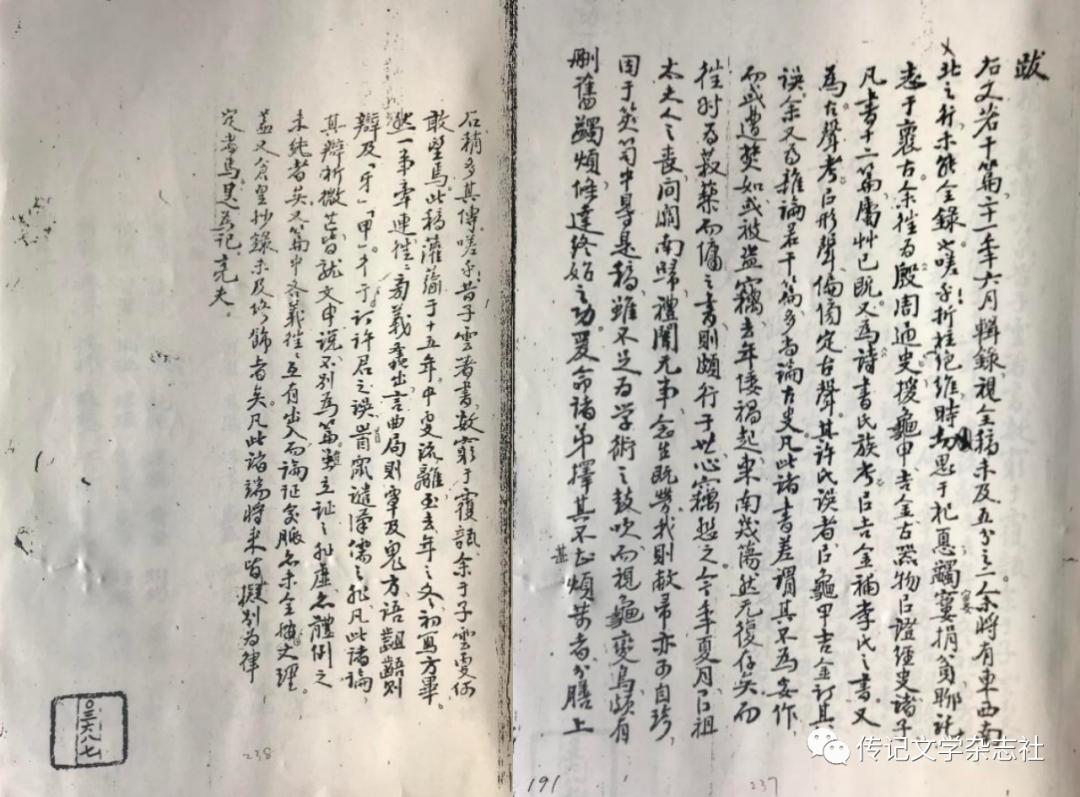 跋
右文若干篇二十一年六月輯錄視全稿未及五分之一余將有東西南
北之行未能全錄也嗟乎折柱絕維時
志于襄古余往為殷周通史搜龜甲吉金古器物以證經史諸子
凡書十二篇屬艸已既又為詩書氏族考以吉金補李氏之書又
為古聲考以形聲偏傍定古聲其許氏誤者以龜甲吉金訂其
誤余又為雜論若干篇多為論古史凡此諸書差謂其不為妄作
而或遭焚如或被盜竊去年倭禍起東南幾蕩然无復存矣而
往時為 藥而傭之書則頗行于世心竊愁之今年夏月以祖
太夫人之喪間關南歸禮闋无事念生既勞我則敝帚亦可自珍
因于笑笥中尋是稿雖不足為學術之鼓吹而視龜變烏頗有
刪舊蠲煩條達終始之功爰命諸弟擇其不甚煩勞者分膳上
石稍多其傳嗟乎昔子雲著書敢窮于覆瓿余于子雲更何
敢望焉此稿濩落于十五年中更流離至去年之冬初寫方畢
一弟牽連往往 義 出言曲局則覃及鬼方語齟齬則
辯及「牙」「甲」于訂許君之誤 眾譴漢儒之非凡此諸論
其辯析微芒皆就文申說不別為篇雖立証之非虛亦體例之
未純者矣又篇中各義往往互有出入而論证 脈亦未全 史理
蓋又倉皇抄錄未及修飾者矣凡此諸端將來皆擬別為律
定者焉是為記亮夫
〇三六八七
238
191
237
传记文学杂志社